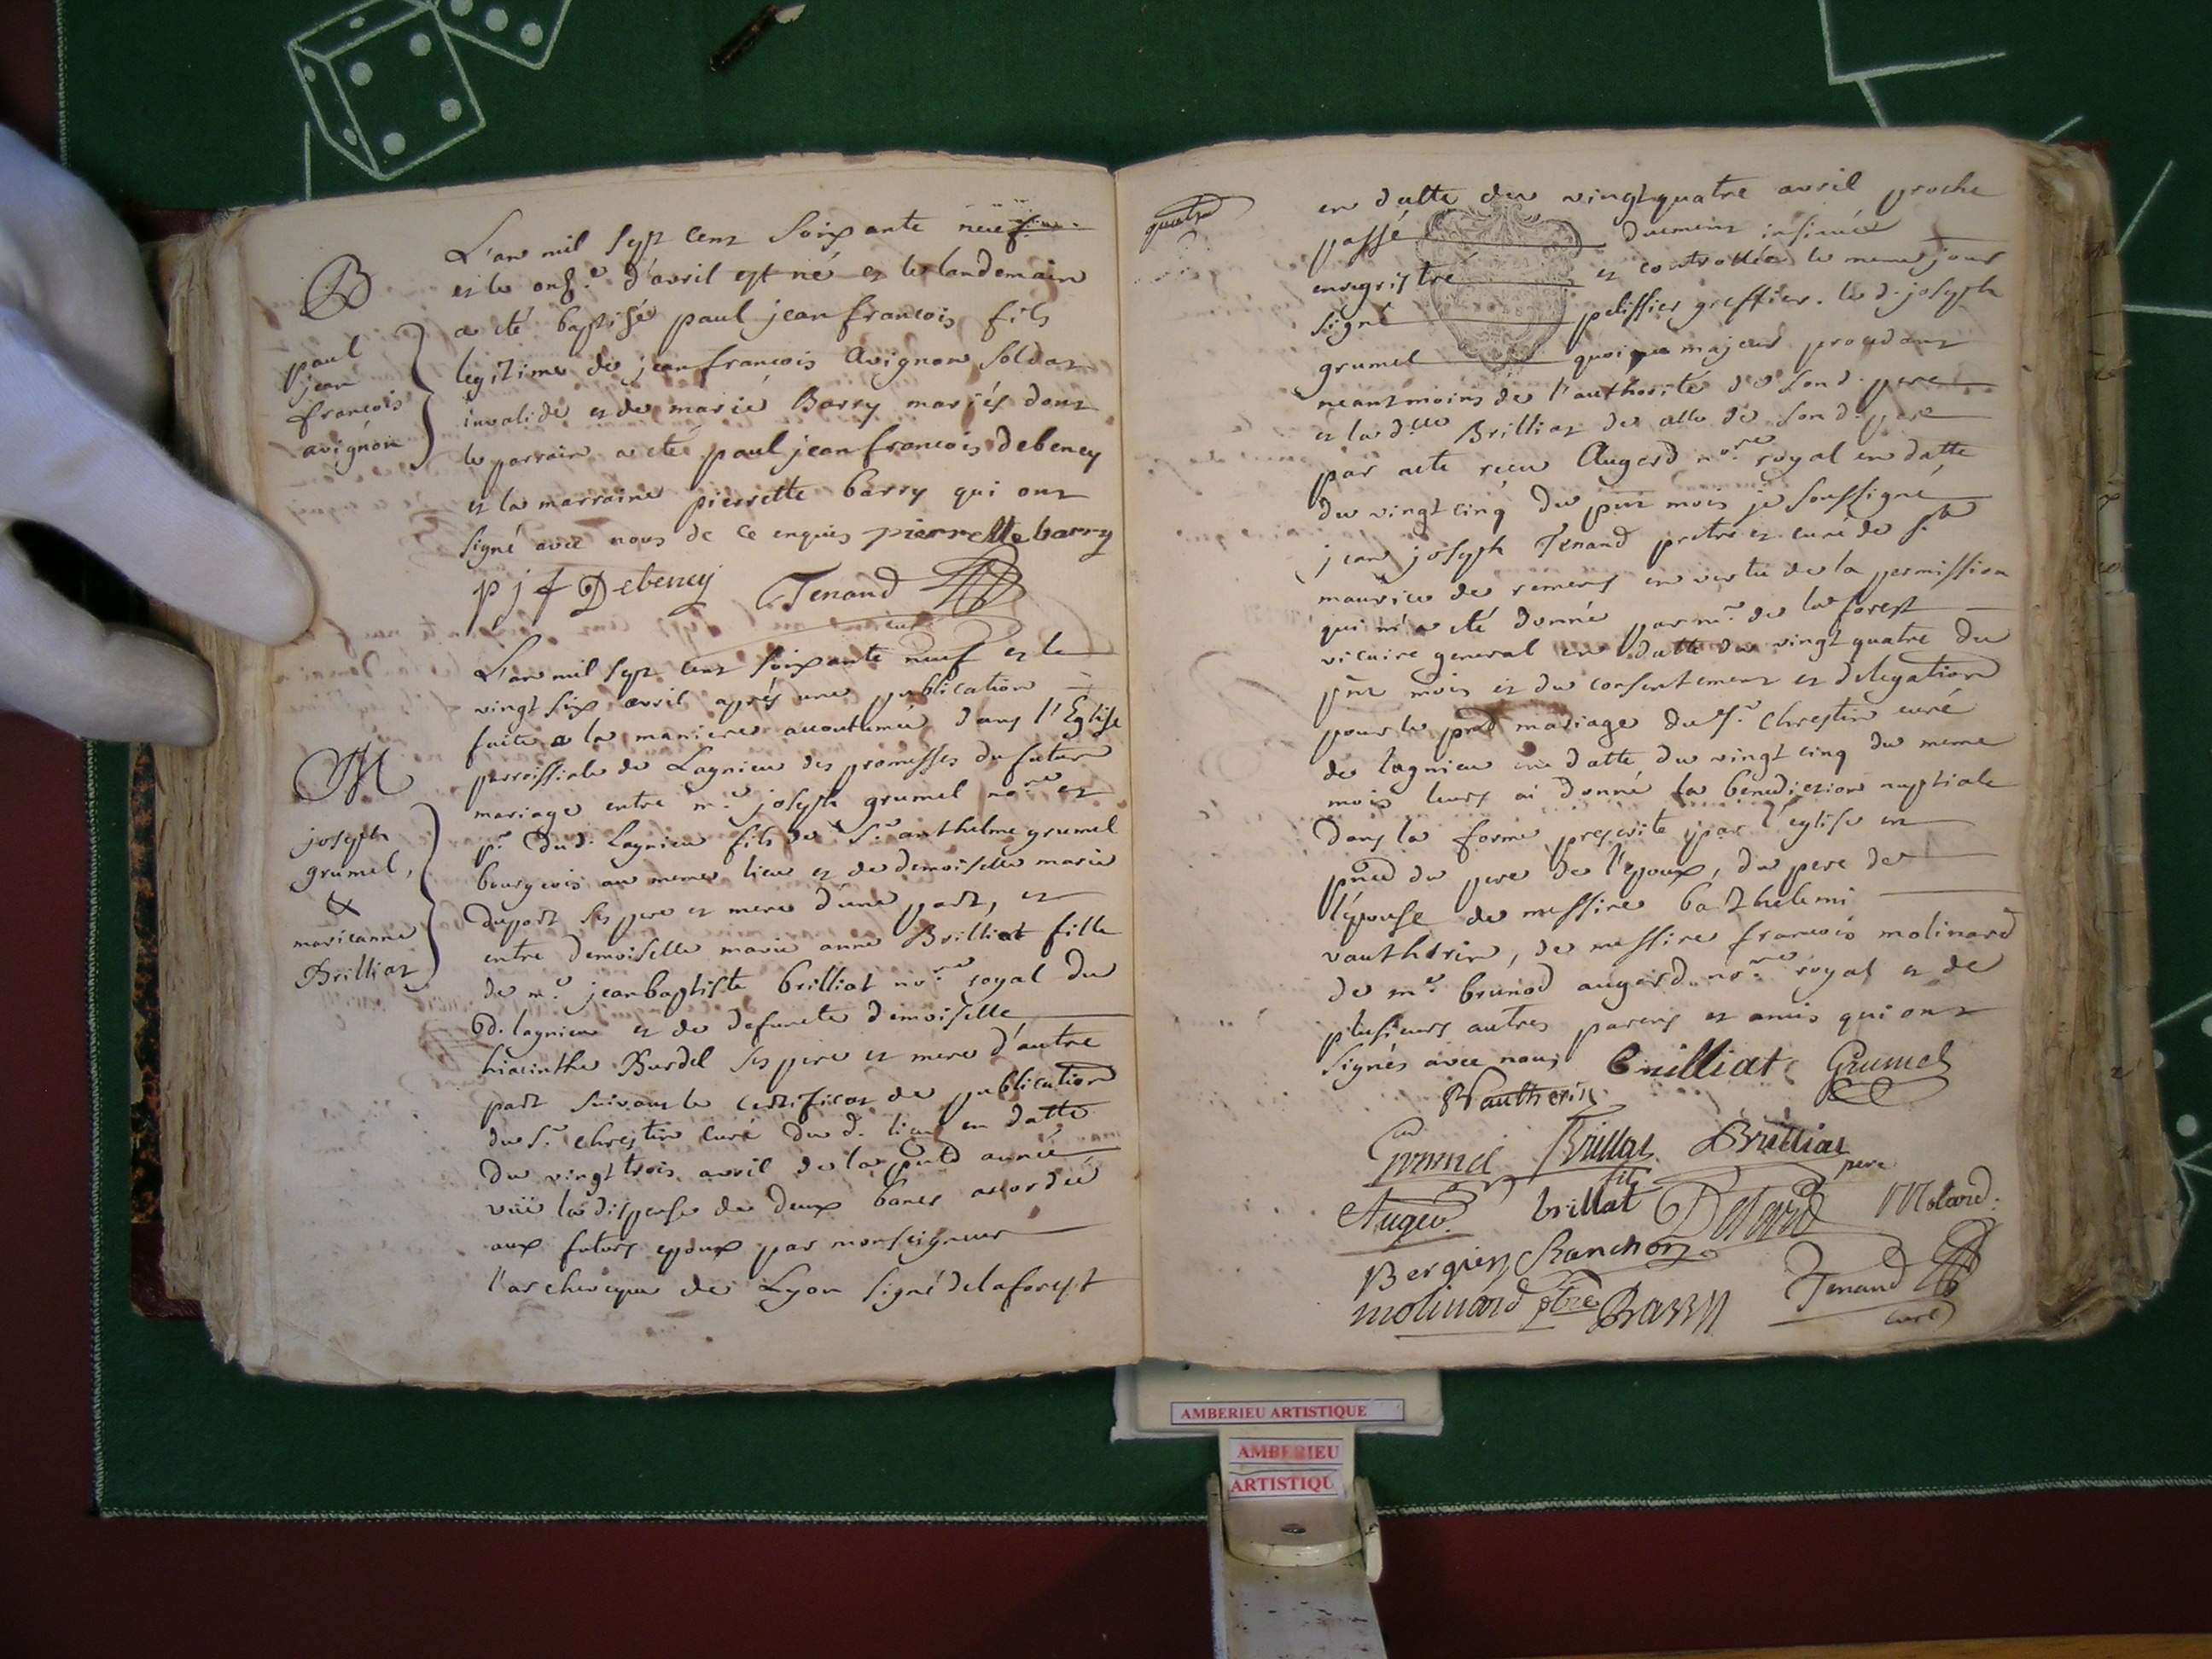 B
paul
jean
françois
avignon
L'an mil sept cent soixante neuf
et le onz.e d'avril est né et le landemain
a eté baptisé paul jean francois fils
legitime de jean francois Avignon soldat
invalide et de marie Barry mariés dont
le parrain a eté paul jean francois debeney
et la marraine pierrette barry qui ont
signé avec nous de ce enquis pierrette barry
p j f Debeney Tenand
curé
M
joseph
grumel,
&
marieanne
Brilliat
L'an mil sept cent soixante neuf et le
vingt six avril après une publication
faite a la maniere accoutumée dans l'Eglise
parroissiale de Lagnieu des promesses du futur
mariage entre m.e joseph grumel no.re et
p.r dud. Lagnieu fils de S.r anthelme grumel
bourgeois au meme lieu et de demoiselle marie
duport ses pere et mere d'une part, et
entre demoiselle marie anne Brilliat fille
de m.e jeanbaptiste brilliat no.re royal du
d. lagnieu et de defuncte demoiselle
hiacinthe Burdel ses pere et mere d'autre
part suivant le certificat de publication
du S.r chrestin curé du d. lieu en datte
du vingt trois avril de la année
vüe la dispense de deux bancs accordée
aux futurs epoux par monseigneur
l'archeveque de Lyon signé delaforest
quatre
en datte du vingtquatre avril proche
passé duement insinuée
enregistré et controllée le meme jour
signé pelissier greffier. le d. joseph
grumel quoique majeur procedant
neantmoins de l'authorité de son d. pere
et la d.lle Brilliat de celle de son d. pere
par acte recu Augerd no.re royal en datte
du vingt cinq du pnt mois je soussigné
jean joseph Tenand pretre et curé de S.t
maurice de remens en vertu de la permission
qui m'a eté donnée par m.r de la forest
vicaire general en datte du vingt quatre du
pnt mois et du consentement et delegation
pour le pnd mariage du S.r chrestin curé
de lagnieu en datte du vingt cinq du meme
mois leurs ai donné la benediction nuptiale
dans la forme prescrite par l'eglise en
pnce du pere de l'epoux, du pere de
l'epouse de messire barthelemi
vautherin, de messire francois molinard
de m.e brunod augerd no.re royal et de
plusieurs autres parens et amis qui ont
signés avec nous Brilliat Grumel
Vautherin
Grumel Brillat fils Brilliat pere
Auger brillat Molard
Bergier Ranchon Tenand
molinard ptre Barry curé
AMBERIEU ARTISTIQUE
AMBERIEU
ARTISTIQU